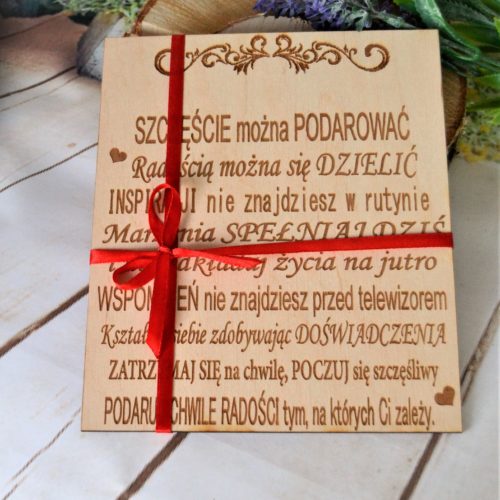 SZCZĘŚCIE można PODAROWAĆ
Radością można się DZIELIĆ
INSPIRACJI nie znajdziesz w rutynie
Marzenia SPEŁNIAJ DZIŚ
życia na jutro
WSPOMNIEŃ nie znajdziesz przed telewizorem
Kształć siebie zdobywając DOŚWIADCZENIA
ZATRZYMAJ SIĘ na chwilę, POCZUJ się szczęśliwy
PODARUJ CHWILE RADOŚCI tym, na których Ci zależy.